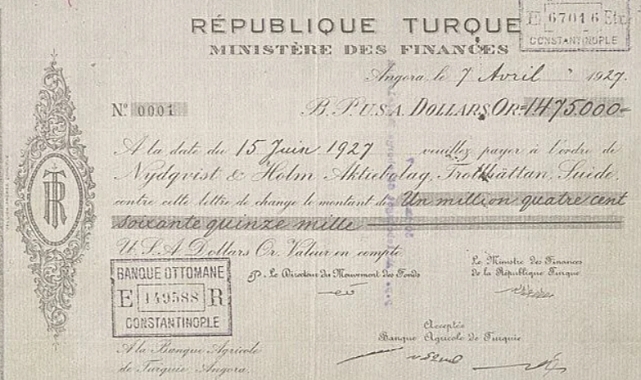 RÉPUBLIQUE TURQUE
MINISTÈRE DES FINANCES
E 67016 Etr.
CONSTANTINOPLE
Angora, le 7 Avril 1927.
N° 0001
B. P. U.S.A. DOLLARS OR=1475.000=
A la date du 15 Juin 1927 veuillez payer à l'ordre de
Nydqvist & Holm Aktiebolag, Trollhättan, Suède.
contre cette lettre de change le montant de Un million quatre cent
soixante quinze mille
U.S.A Dollars Or. Valeur en compte
BANQUE OTTOMANE
E 149588 R
CONSTANTINOPLE
P. Le Directeur du Mouvement des Fonds
Le Ministre des Finances
de la République Turque
Acceptée
Banque Agricole de Turquie
A la Banque Agricole
de Turquie Angora.